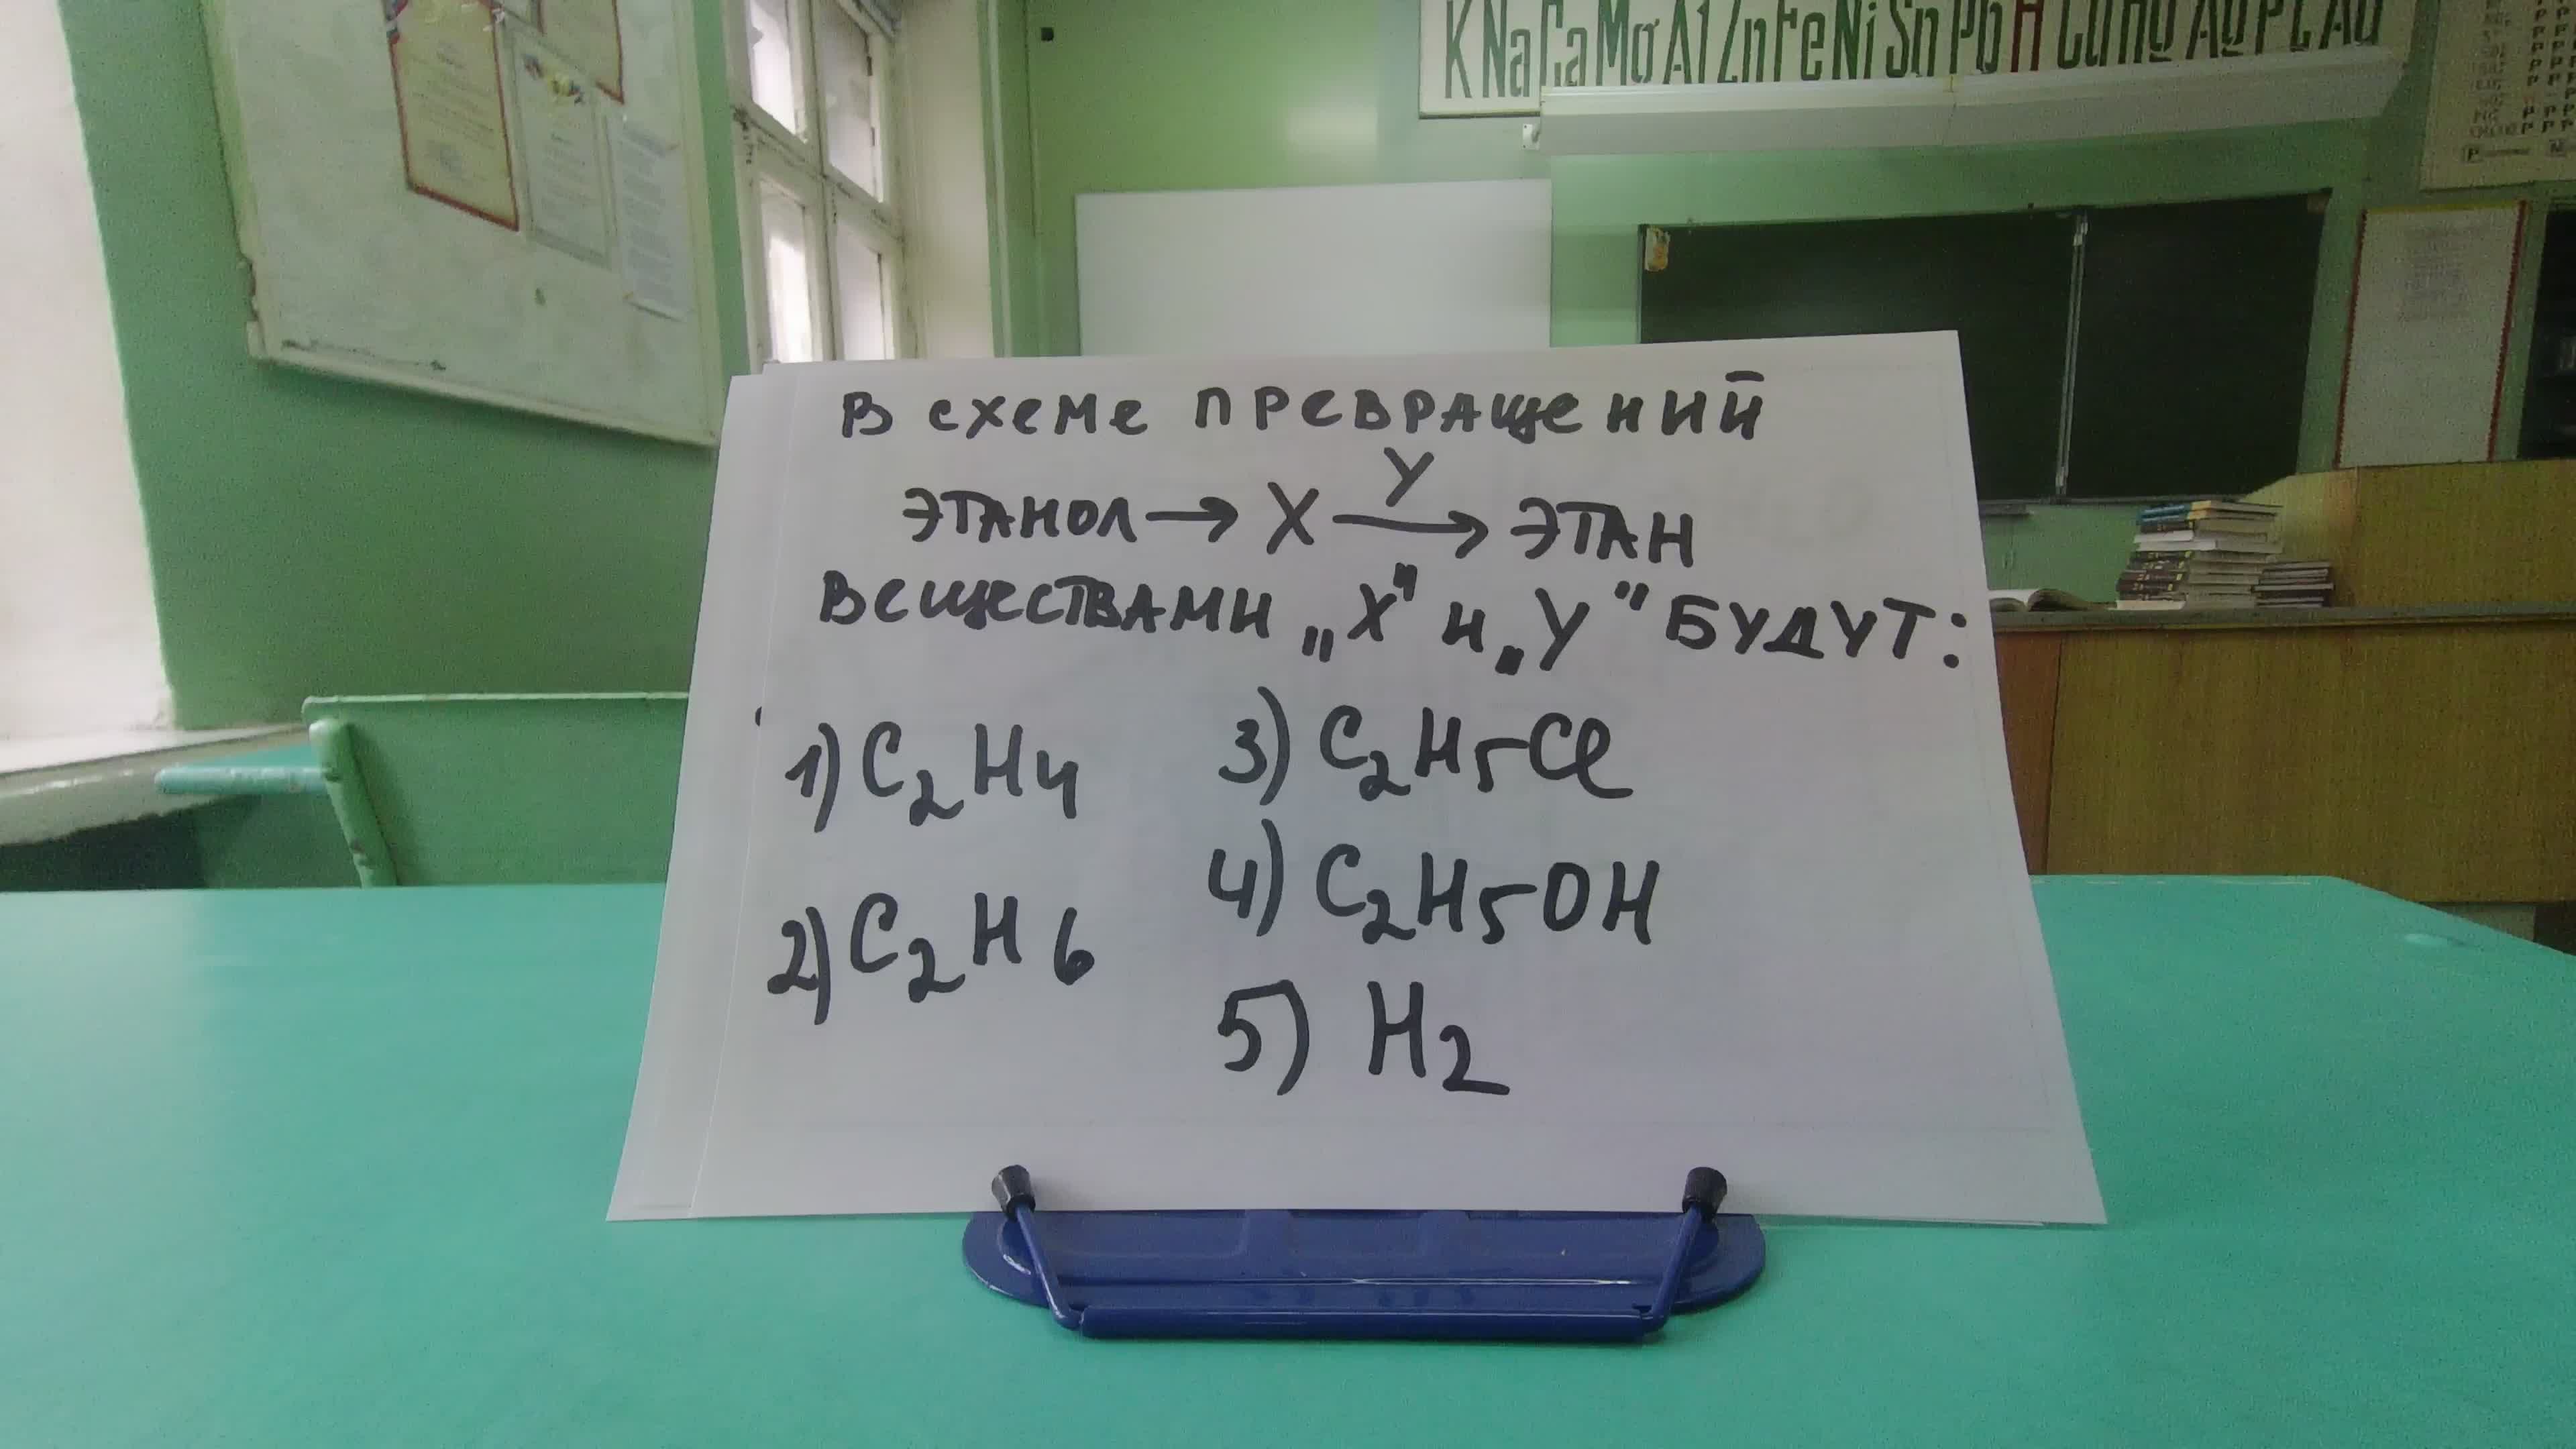 K Na Ca Mg Al Zn Fe Ni Sn Pb H Cu Hg Ag Pt Au
В схеме превращений
Y
этанол → X → этан
веществами „X" и „Y" будут:
1) C2H4
3) C2H5Cl
4) C2H5OH
2) C2H6
5) H2